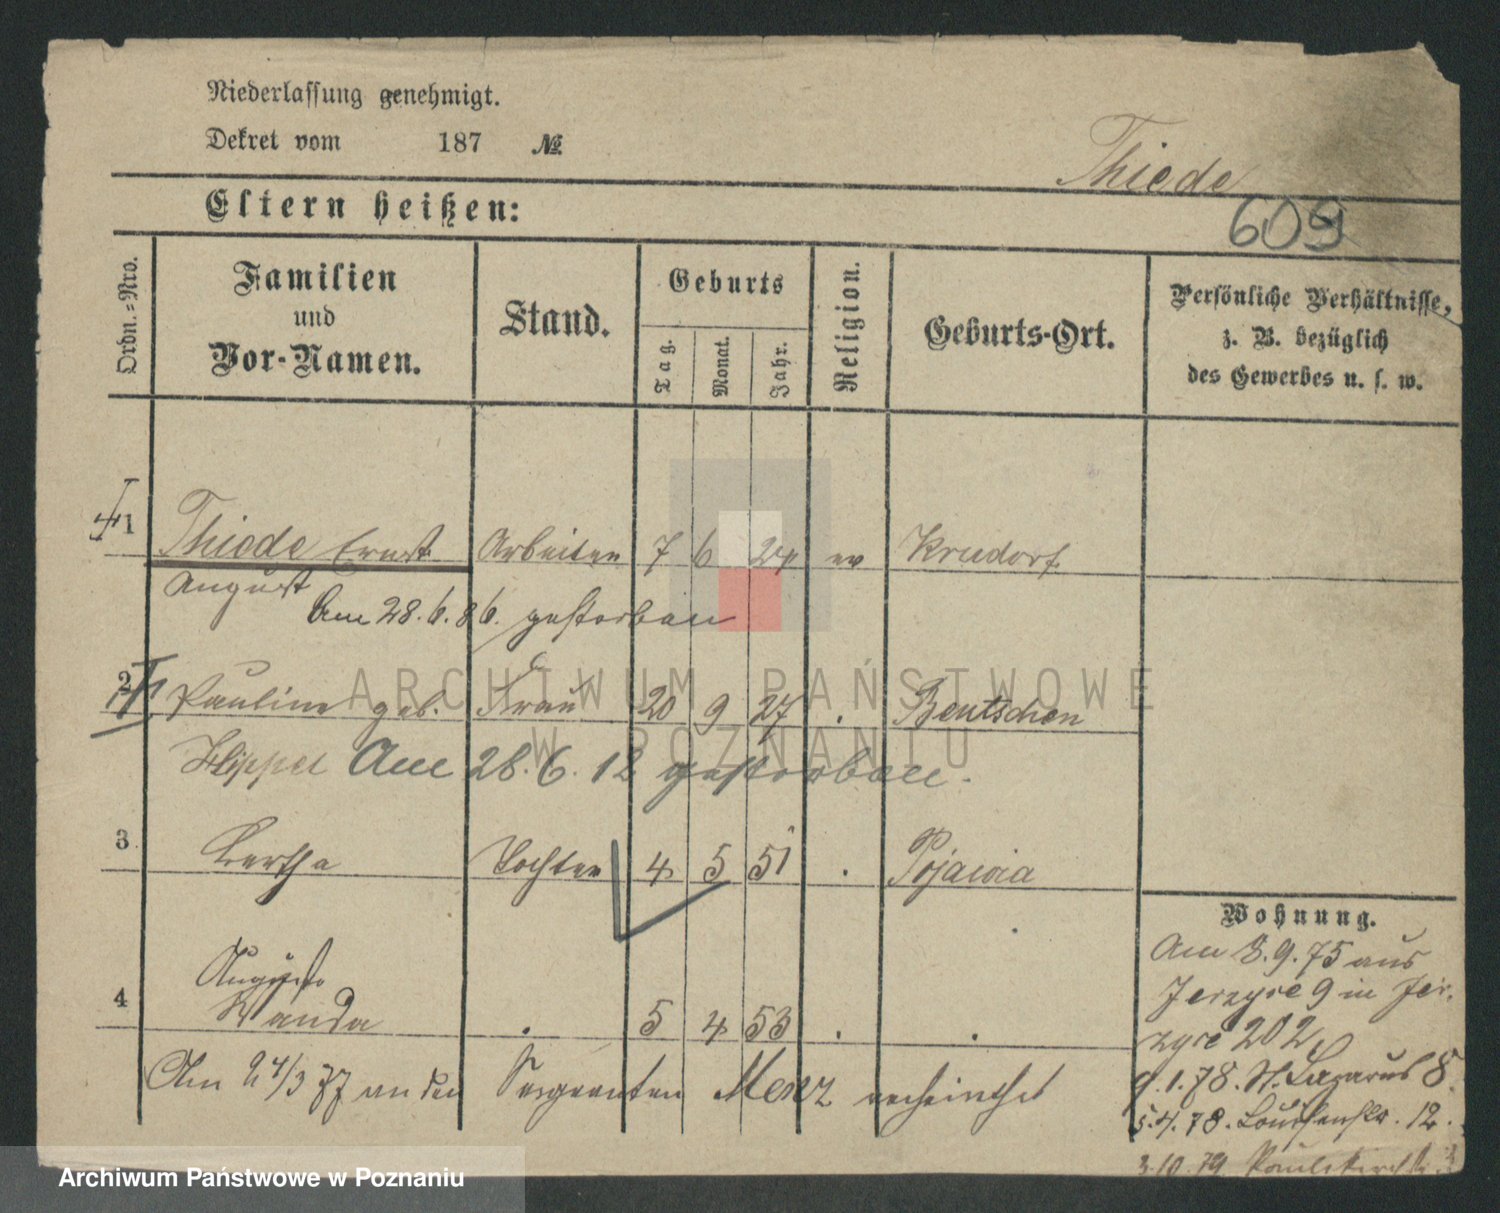 Niederlassung genehmigt.
Dekret vom 187 №
Thiede
609
Eltern heißen:
Ordn.-Nro.
Familien und Vor-Namen.
Stand.
Geburts
Tag.
Monat.
Jahr.
Religion.
Geburts-Ort.
Persönliche Verhältnisse, z. B. bezüglich des Gewerbes u. s. w.
1 Thiede Ernst Arbeiter 7 6 24 ev
August
Am 28.6.86. gestorben
2 Pauline geb. Frau 20 9 27 . Bentschen
Klippel Am 28.6.12 gestorben.
3 Bertha Tochter 4 5 51 .
4 Auguste
Wanda . 5 4 53 . .
Am 24/3 77 an den Sergeanten Menz verheirathet
Wohnung.
Am 8.9.75 aus
Jerzyce 9 in Jer-
zyce 202
9.1.78. St. Lazarus 8.
5.4.78. Louisenstr. 12.
3.10.79 Paulikirchstr.
ARCHIWUM PAŃSTWOWE
W POZNANIU
Archiwum Państwowe w Poznaniu